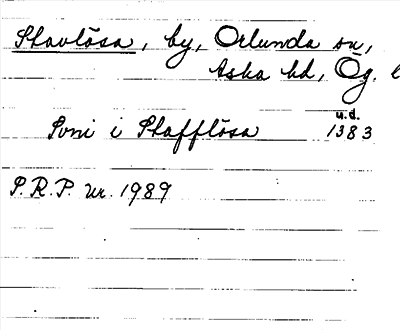 Skavlösa, by, Orlunda sn,
Aska hd, Ög.
u.d.
Soni i Skafflösa 1383
P.R.P. nr. 1989